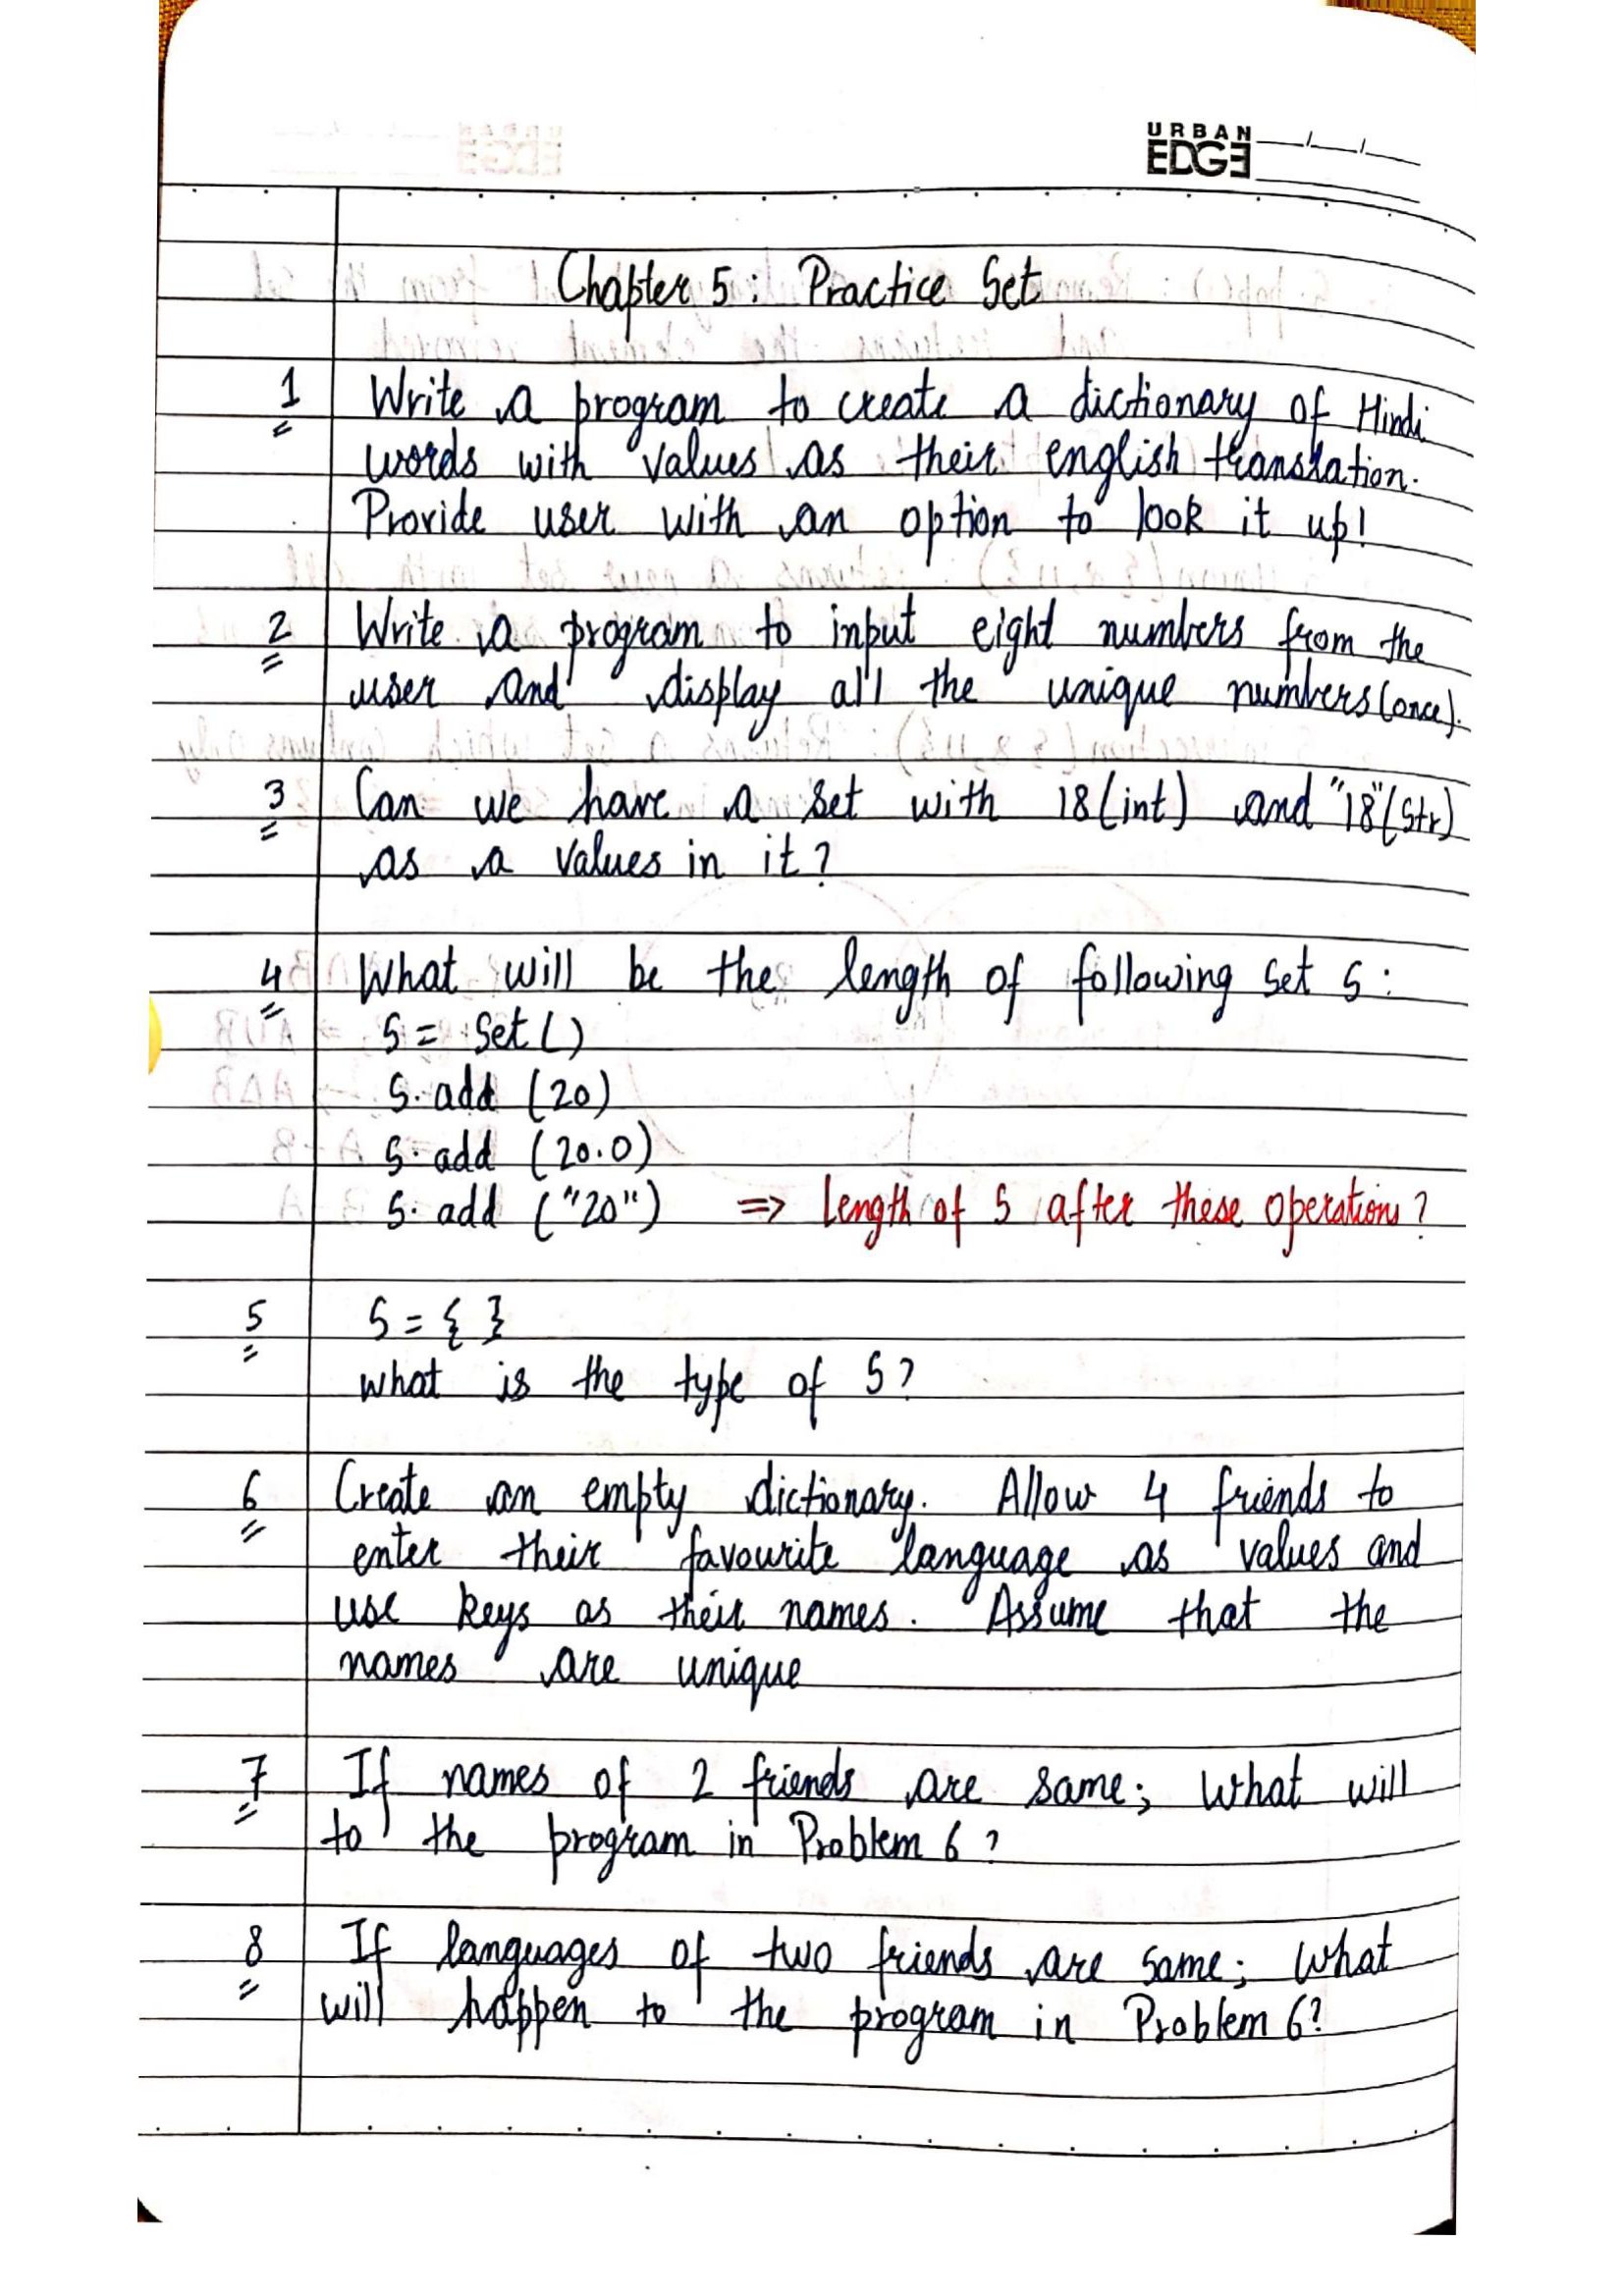 URBAN
EDGE
Chapter 5: Practice Set
1 Write a program to create a dictionary of Hindi
words with values as their english translation.
Provide user with an option to look it up!
2 Write a program to input eight numbers from the
user and display all the unique numbers (once).
3 Can we have a set with 18 (int) and "18" (str)
as a values in it?
4 What will be the length of following set S:
S = Set ()
S. add (20)
S. add (20.0)
S. add ("20") => length of S after these operations?
5 S = { }
what is the type of S?
6 Create an empty dictionary. Allow 4 friends to
enter their favourite language as values and
use keys as their names. Assume that the
names are unique
7 If names of 2 friends are same; what will
to the program in Problem 6?
8 If languages of two friends are same; what
will happen to the program in Problem 6?